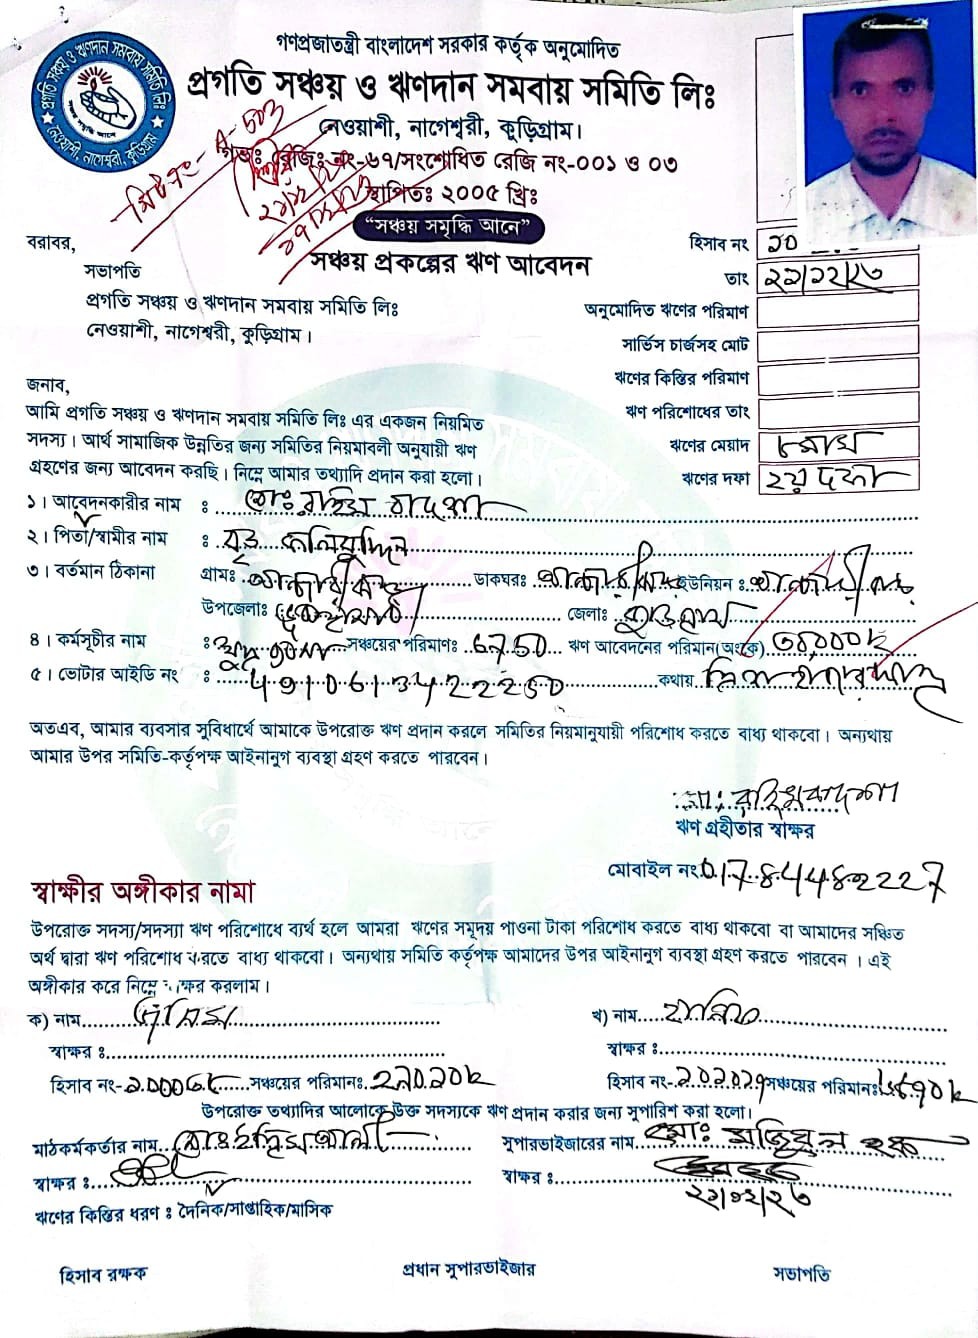 প্রগতি সঞ্চয় ও ঋণদান সমবায় সমিতি লিঃ
নেওয়াশী, নাগেশ্বরী, কুড়িগ্রাম
সঞ্চয় সমৃদ্ধি আনে
গণপ্রজাতন্ত্রী বাংলাদেশ সরকার কর্তৃক অনুমোদিত
প্রগতি সঞ্চয় ও ঋণদান সমবায় সমিতি লিঃ
নেওয়াশী, নাগেশ্বরী, কুড়িগ্রাম।
গভঃ রেজিঃ নং-৬৭/সংশোধিত রেজি নং-০০১ ও ০৩
A-503
স্থাপিতঃ ২০০৫ খ্রিঃ
“সঞ্চয় সমৃদ্ধি আনে”
সঞ্চয় প্রকল্পের ঋণ আবেদন
বরাবর,
সভাপতি
প্রগতি সঞ্চয় ও ঋণদান সমবায় সমিতি লিঃ
নেওয়াশী, নাগেশ্বরী, কুড়িগ্রাম।
হিসাব নং
তাং ২১/১২/২৩
অনুমোদিত ঋণের পরিমাণ
সার্ভিস চার্জসহ মোট
ঋণের কিস্তির পরিমাণ
ঋণ পরিশোধের তাং
ঋণের মেয়াদ ৮ মাস
ঋণের দফা ২য় দফা
জনাব,
আমি প্রগতি সঞ্চয় ও ঋণদান সমবায় সমিতি লিঃ এর একজন নিয়মিত
সদস্য। আর্থ সামাজিক উন্নতির জন্য সমিতির নিয়মাবলী অনুযায়ী ঋণ
গ্রহণের জন্য আবেদন করছি। নিম্নে আমার তথ্যাদি প্রদান করা হলো।
১। আবেদনকারীর নাম : মোঃ রহিম বাদশা
২। পিতা/স্বামীর নাম : মৃত কলিমুদ্দিন
৩। বর্তমান ঠিকানা গ্রামঃ ডাকঘরঃ ইউনিয়ন :
উপজেলাঃ জেলাঃ কুড়িগ্রাম
৪। কর্মসূচীর নাম : সঞ্চয়ের পরিমাণঃ 6750 ঋণ আবেদনের পরিমান(অংকে) ৩০,০০০৳
৫। ভোটার আইডি নং : 4910613422250 কথায় ত্রিশ হাজার মাত্র
অতএব, আমার ব্যবসার সুবিধার্থে আমাকে উপরোক্ত ঋণ প্রদান করলে সমিতির নিয়মানুযায়ী পরিশোধ করতে বাধ্য থাকবো। অন্যথায়
আমার উপর সমিতি-কর্তৃপক্ষ আইনানুগ ব্যবস্থা গ্রহণ করতে পারবেন।
মোঃ রহিম বাদশা
ঋণ গ্রহীতার স্বাক্ষর
মোবাইল নং 01784482227
স্বাক্ষীর অঙ্গীকার নামা
উপরোক্ত সদস্য/সদস্যা ঋণ পরিশোধে ব্যর্থ হলে আমরা ঋণের সমূদয় পাওনা টাকা পরিশোধ করতে বাধ্য থাকবো বা আমাদের সঞ্চিত
অর্থ দ্বারা ঋণ পরিশোধ করতে বাধ্য থাকবো। অন্যথায় সমিতি কর্তৃপক্ষ আমাদের উপর আইনানুগ ব্যবস্থা গ্রহণ করতে পারবেন । এই
অঙ্গীকার করে নিম্নে স্বাক্ষর করলাম।
ক) নাম খ) নাম
স্বাক্ষর : স্বাক্ষর :
হিসাব নং- সঞ্চয়ের পরিমানঃ হিসাব নং- সঞ্চয়ের পরিমানঃ
উপরোক্ত তথ্যাদির আলোকে উক্ত সদস্যকে ঋণ প্রদান করার জন্য সুপারিশ করা হলো।
মাঠকর্মকর্তার নাম মোঃ ইদ্রিস আলী সুপারভাইজারের নাম মোঃ হক
স্বাক্ষর : স্বাক্ষর :
২১/১২/২৩
ঋণের কিস্তির ধরণ : দৈনিক/সাপ্তাহিক/মাসিক
হিসাব রক্ষক প্রধান সুপারভাইজার সভাপতি